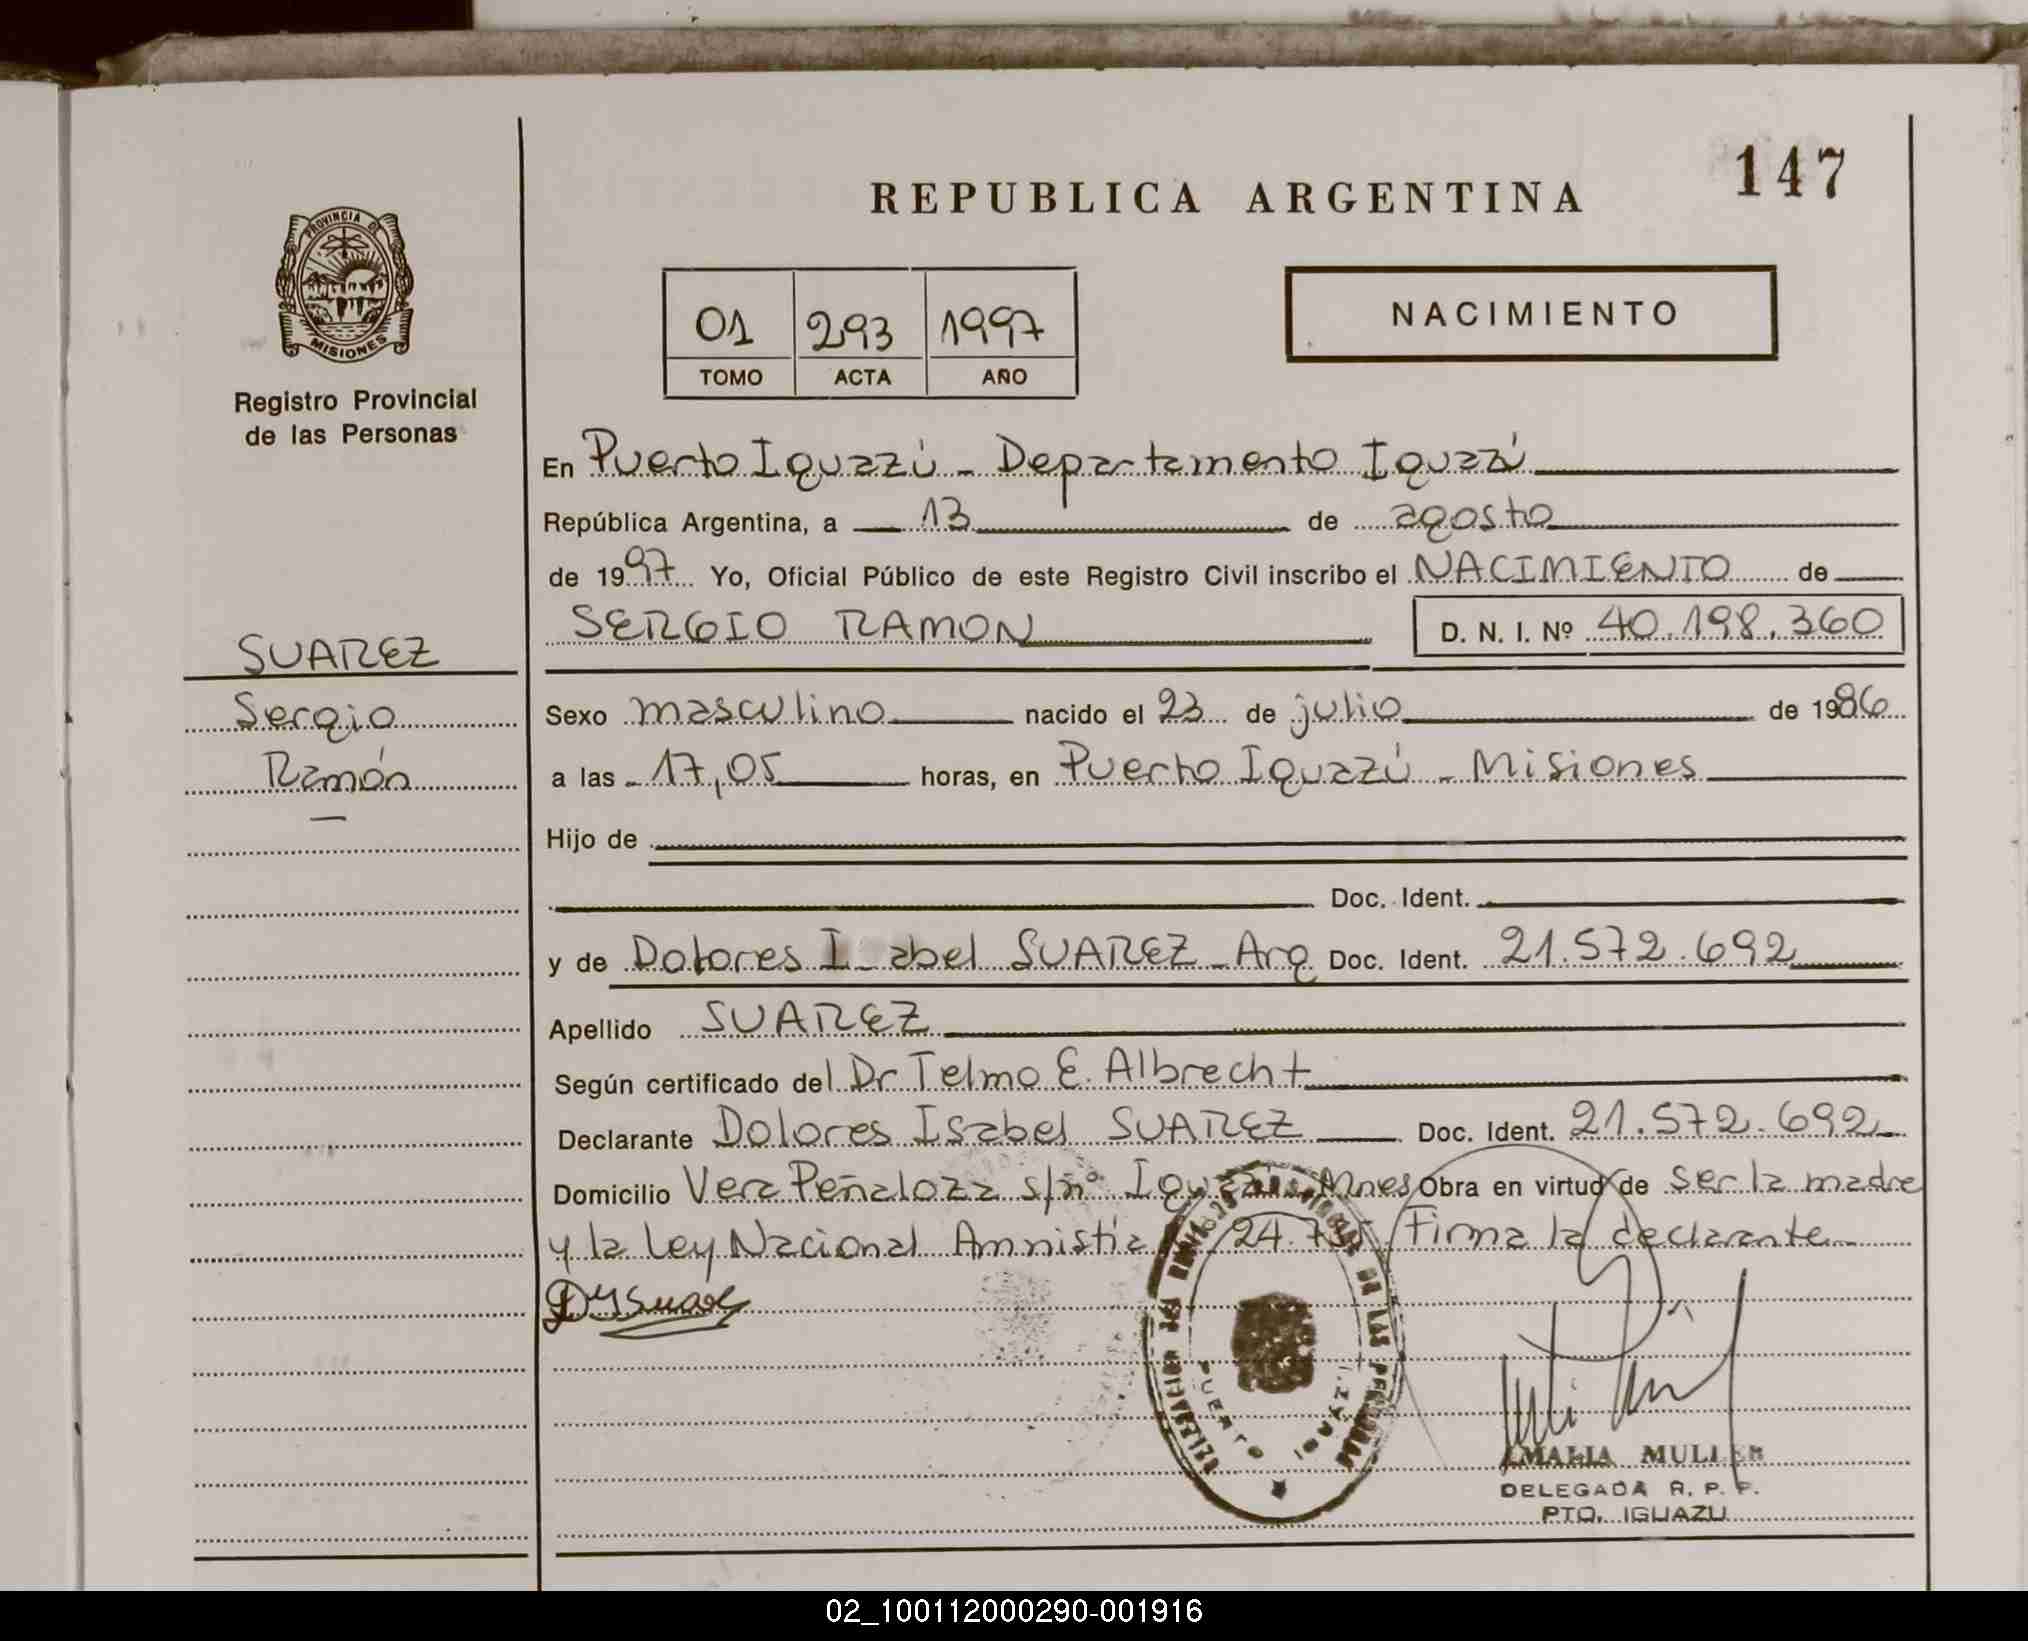 147
REPUBLICA ARGENTINA
PROVINCIA DE
MISIONES
Registro Provincial
de las Personas
01 293 1997
TOMO ACTA AÑO
NACIMIENTO
En Puerto Iguazú - Departamento Iguazú
República Argentina, a 13 de agosto
de 1997 Yo, Oficial Público de este Registro Civil inscribo el NACIMIENTO de
SERGIO RAMON D. N. I. Nº 40.198.360
SUAREZ
Sergio
Ramón
Sexo masculino nacido el 23 de julio de 1986
a las 17,05 horas, en Puerto Iguazú - Misiones
Hijo de
Doc. Ident.
y de Dolores I_abel SUAREZ - Arg Doc. Ident. 21.572.692
Apellido SUAREZ
Según certificado del Dr Telmo E. Albrecht
Declarante Dolores Isabel SUAREZ Doc. Ident. 21.572.692
Domicilio Vera Peñaloza s/nº Iguazú Mnes Obra en virtud de ser la madre
y la Ley Nacional Amnistia 24.755 Firma la declarante
DYSuarez
DE LAS
PUERTO
AMALIA MULLER
DELEGADA R. P. P.
PTO. IGUAZU
02_100112000290-001916